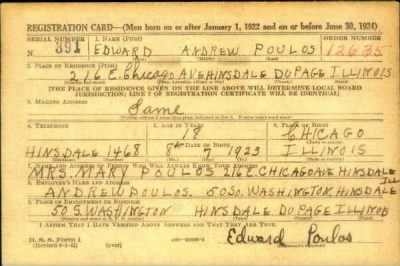 REGISTRATION CARD—(Men born on or after January 1, 1922 and on or before June 30, 1924)
SERIAL NUMBER 1. NAME (Print) ORDER NUMBER
391 EDWARD ANDREW POULOS 12635
2. PLACE OF RESIDENCE (Print)
216 E. Chicago AVE HINSDALE DU PAGE ILLINOIS
[THE PLACE OF RESIDENCE GIVEN ON THE LINE ABOVE WILL DETERMINE LOCAL BOARD
JURISDICTION; LINE 2 OF REGISTRATION CERTIFICATE WILL BE IDENTICAL]
3. MAILING ADDRESS
Same
4. TELEPHONE 5. AGE IN YEARS 6. PLACE OF BIRTH
18 CHICAGO
DATE OF BIRTH
HINSDALE 1468 7 1923 ILLINOIS
7. NAME AND ADDRESS OF PERSON WHO WILL ALWAYS KNOW YOUR ADDRESS
MRS. MARY POULOS 216 E. CHICAGO AVE HINSDALE ILL
8. EMPLOYER'S NAME AND ADDRESS
ANDREW POULOS. 50 SO. WASHINGTON. HINSDALE
9. PLACE OF EMPLOYMENT OR BUSINESS
50 S. WASHINGTON HINSDALE DU PAGE ILLINOIS
I AFFIRM THAT I HAVE VERIFIED ABOVE ANSWERS AND THAT THEY ARE TRUE.
D. S. S. Form 1
Edward Poulos